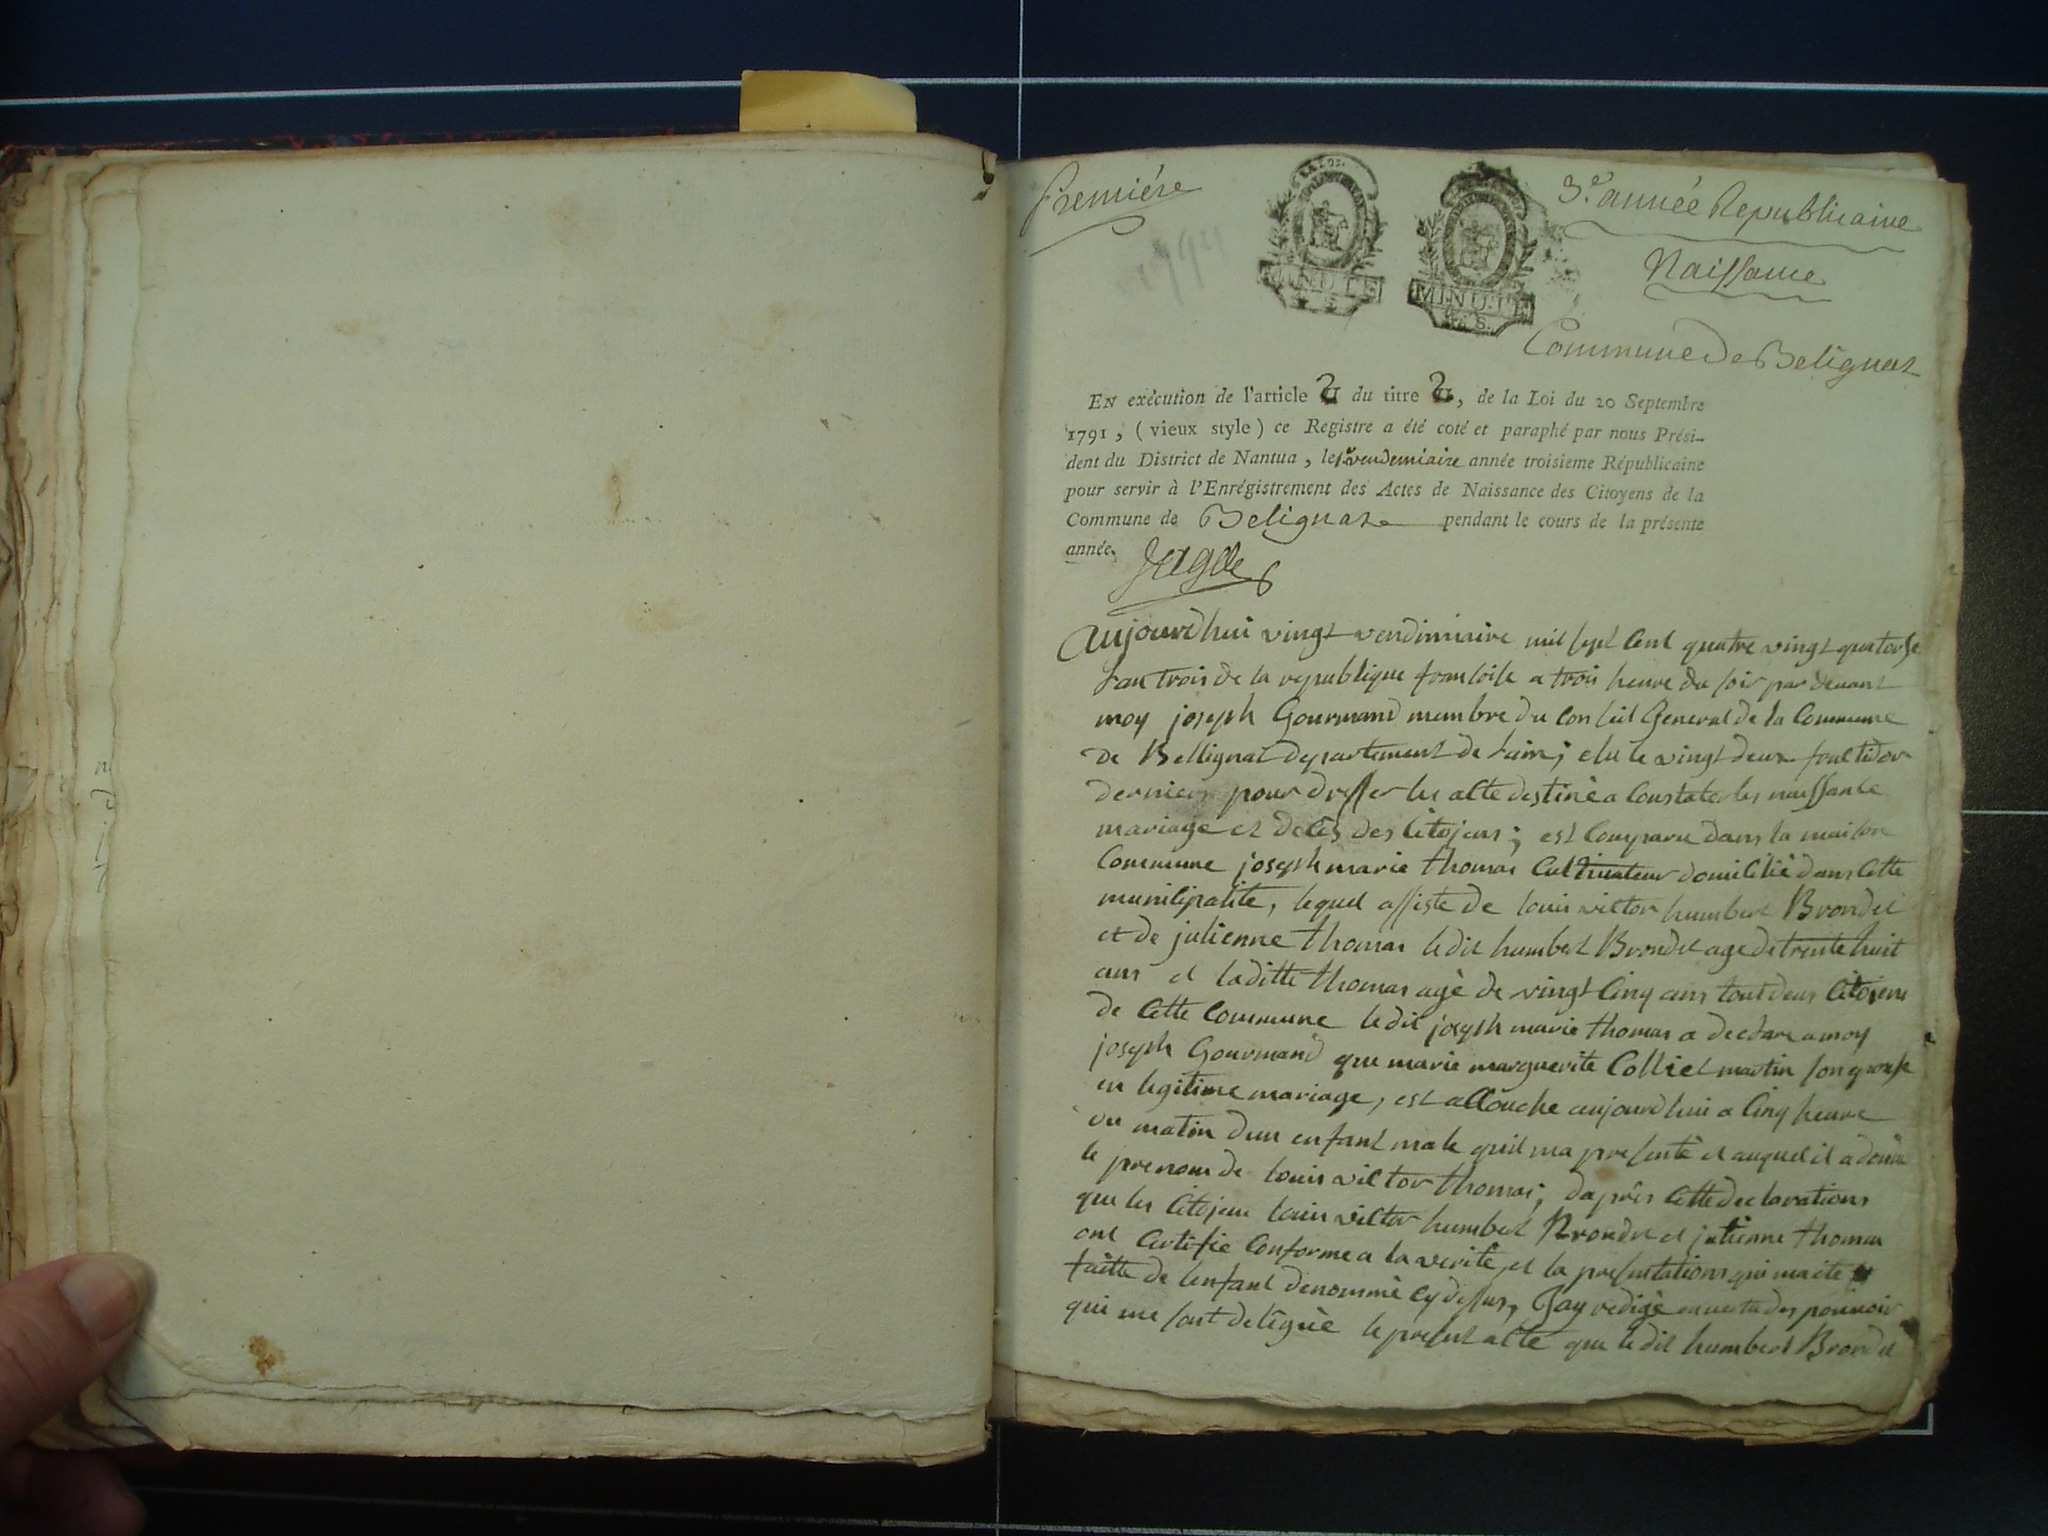 Premiére
1794
3.e année Republicaine
Naissance
Commune de Belignat
MINUTE
MINUTE
4. S.
En exécution de l'article 2 du titre 2, de la Loi du 20 Septembre
1791, (vieux style) ce Registre a été coté et paraphé par nous Prési-
dent du District de Nantua, le 1er vendemiaire année troisieme Républicaine
pour servir à l'Enrégistrement des Actes de Naissance des Citoyens de la
Commune de Belignat pendant le cours de la présente
année.
aujourdhui vingt vendimiaire mil sept cent quatre vingt quatorse
lan trois de la republique fransoise a trois heure du soir par devant
moy joseph Gourmand membre du conseil General de la Commune
de Bellignat departement de lain; elu le vingt deux fructidor
dernier pour dresser les acte destiné a Constater les naissance
mariage et decês des citojens; est Comparu dans la maison
Commune joseph marie thomas Cultivateur domicilié dans cette
municipalite, lequel assiste de louis victor humbert Brondel
et de julienne thomas ledit humbert Brondel age de trente huit
ans et laditte thomas agé de vingt Cinq ans tout deux Citojens
de Cette Commune ledit joseph marie thomas a declare a moy
joseph Gourmand que marie marguerite Colliet martin son epouse
en legitime mariage, est accouche aujourdhui a Cinq heure
du matin dun enfant male quil ma presenté et auquel il a donné
le prenom de louis victor thomas; daprês cette declarations
que les Citojens louis victor humbert Brondel et julienne thomas
ont Certifie Conforme a la verité et la presentations qui ma ete
faitte de lenfant denommé cy dessus, Jay redigé en vertu des pouvoir
qui me sont delégué le present acte que ledit humbert Brondel